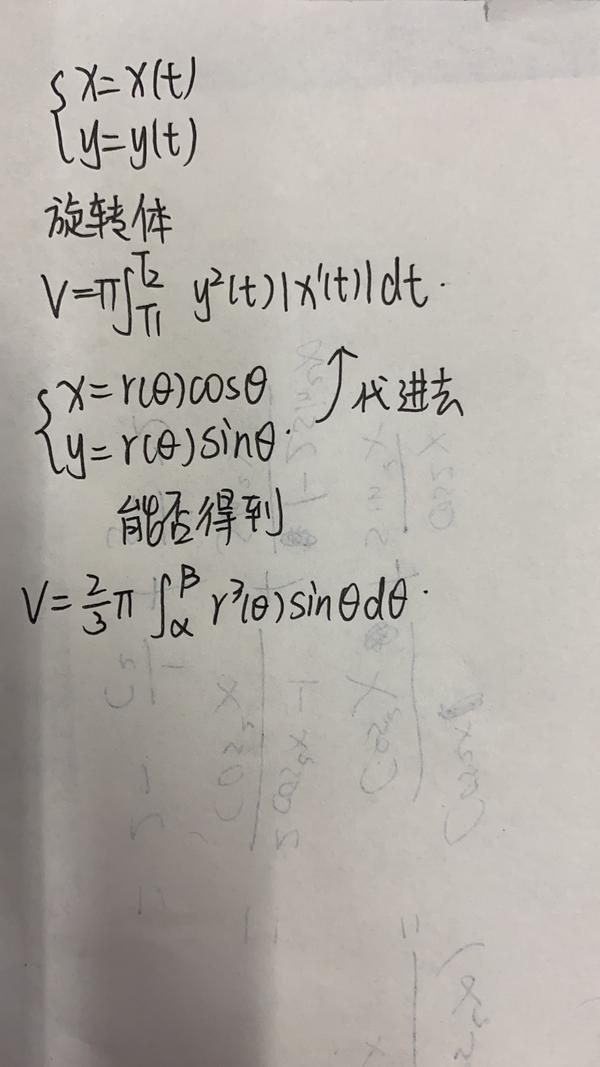 {x=x(t)
{y=y(t)
旋转体
V=π∫_{T1}^{T2} y²(t)|x'(t)|dt.
{x=r(θ)cosθ ↗代进去
{y=r(θ)sinθ.
能否得到
V=2/3π∫_α^β r³(θ)sinθdθ.